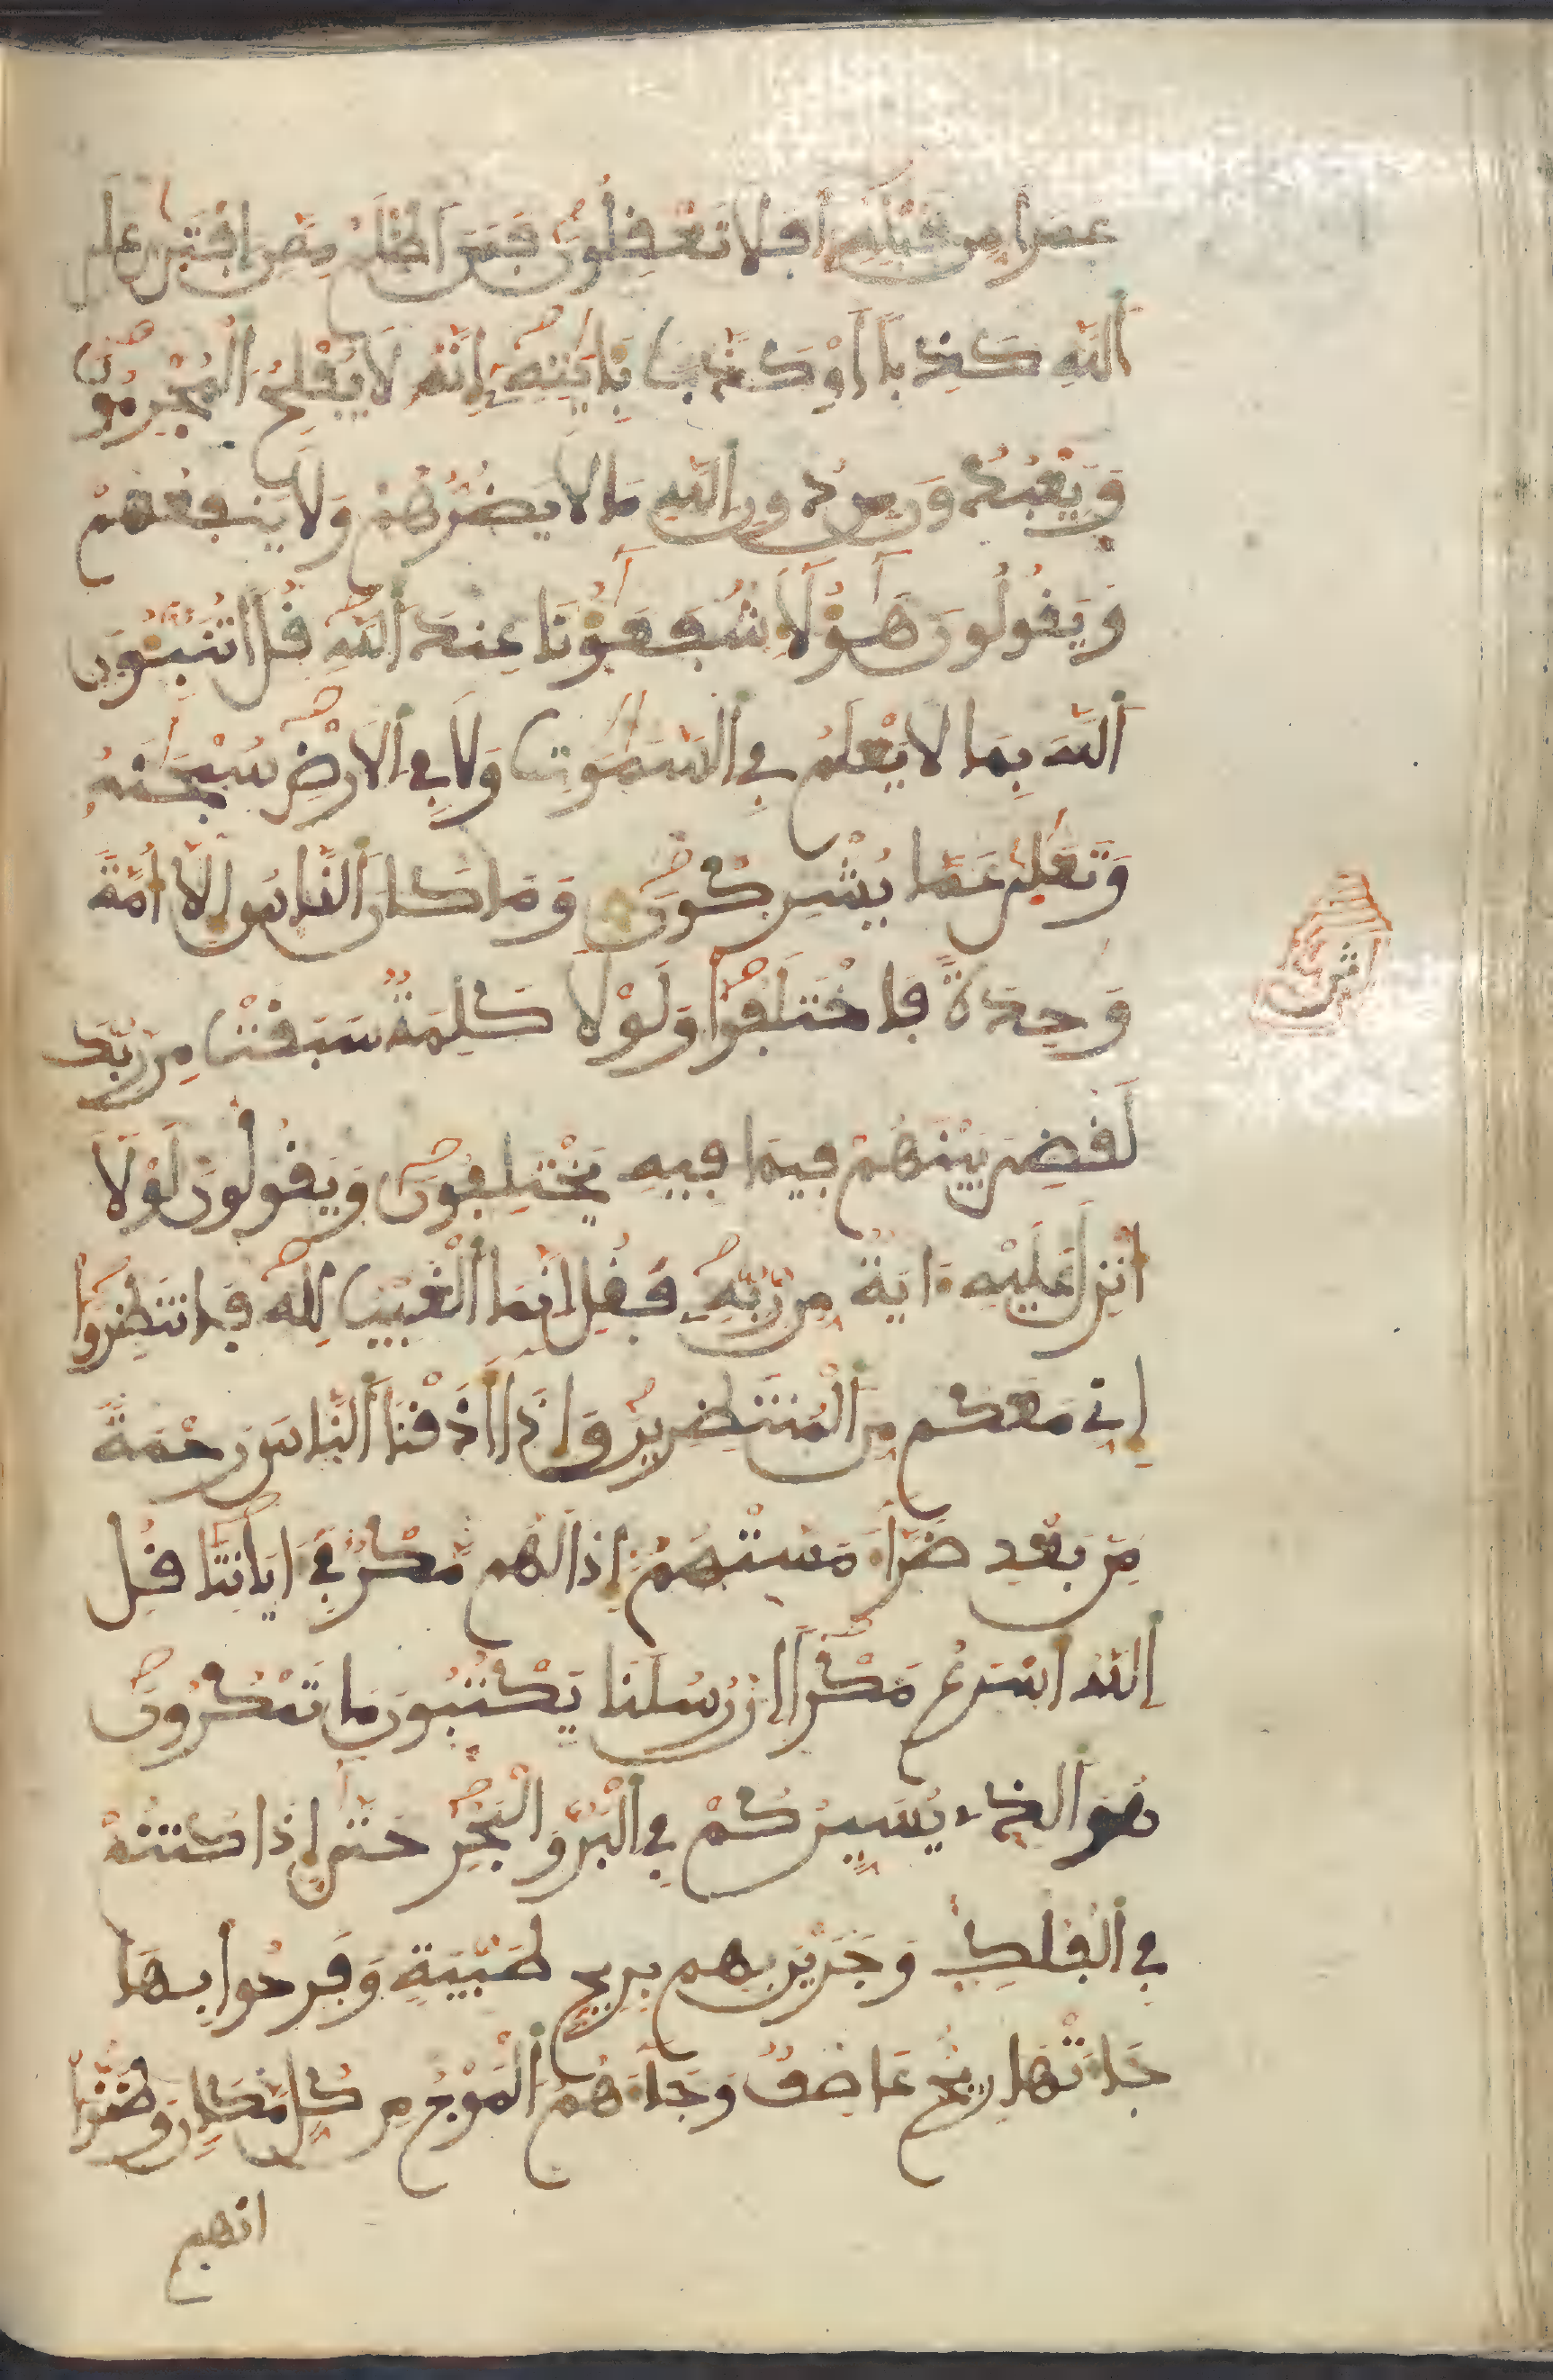 عمرا من قبله افلا تعقلون فمن اظلم ممن افترى على
الله كذبا او كذب بايته انه لا يفلح المجرمون
ويعبدون من دون الله ما لا يضرهم ولا ينفعهم
ويقولون هؤلاء شفعؤنا عند الله قل اتنبئون
الله بما لا يعلم في السموت ولا في الارض سبحنه
وتعلى عما يشركون وما كان الناس الا امة
وحدة فاختلفوا ولولا كلمة سبقت من ربك
لقضي بينهم فيما فيه يختلفون ويقولون لولا
انزل عليه ءاية من ربه فقل انما الغيب لله فانتظروا
اني معكم من المنتظرين واذا اذقنا الناس رحمة
من بعد ضراء مستهم اذا لهم مكر في اياتنا قل
الله اسرع مكرا ان رسلنا يكتبون ما تمكرون
هو الذي يسيركم في البر والبحر حتى اذا كنتم
في الفلك وجرين بهم بريح طيبة وفرحوا بها
جاءتها ريح عاصف وجاءهم الموج من كل مكان وظنوا
انهم